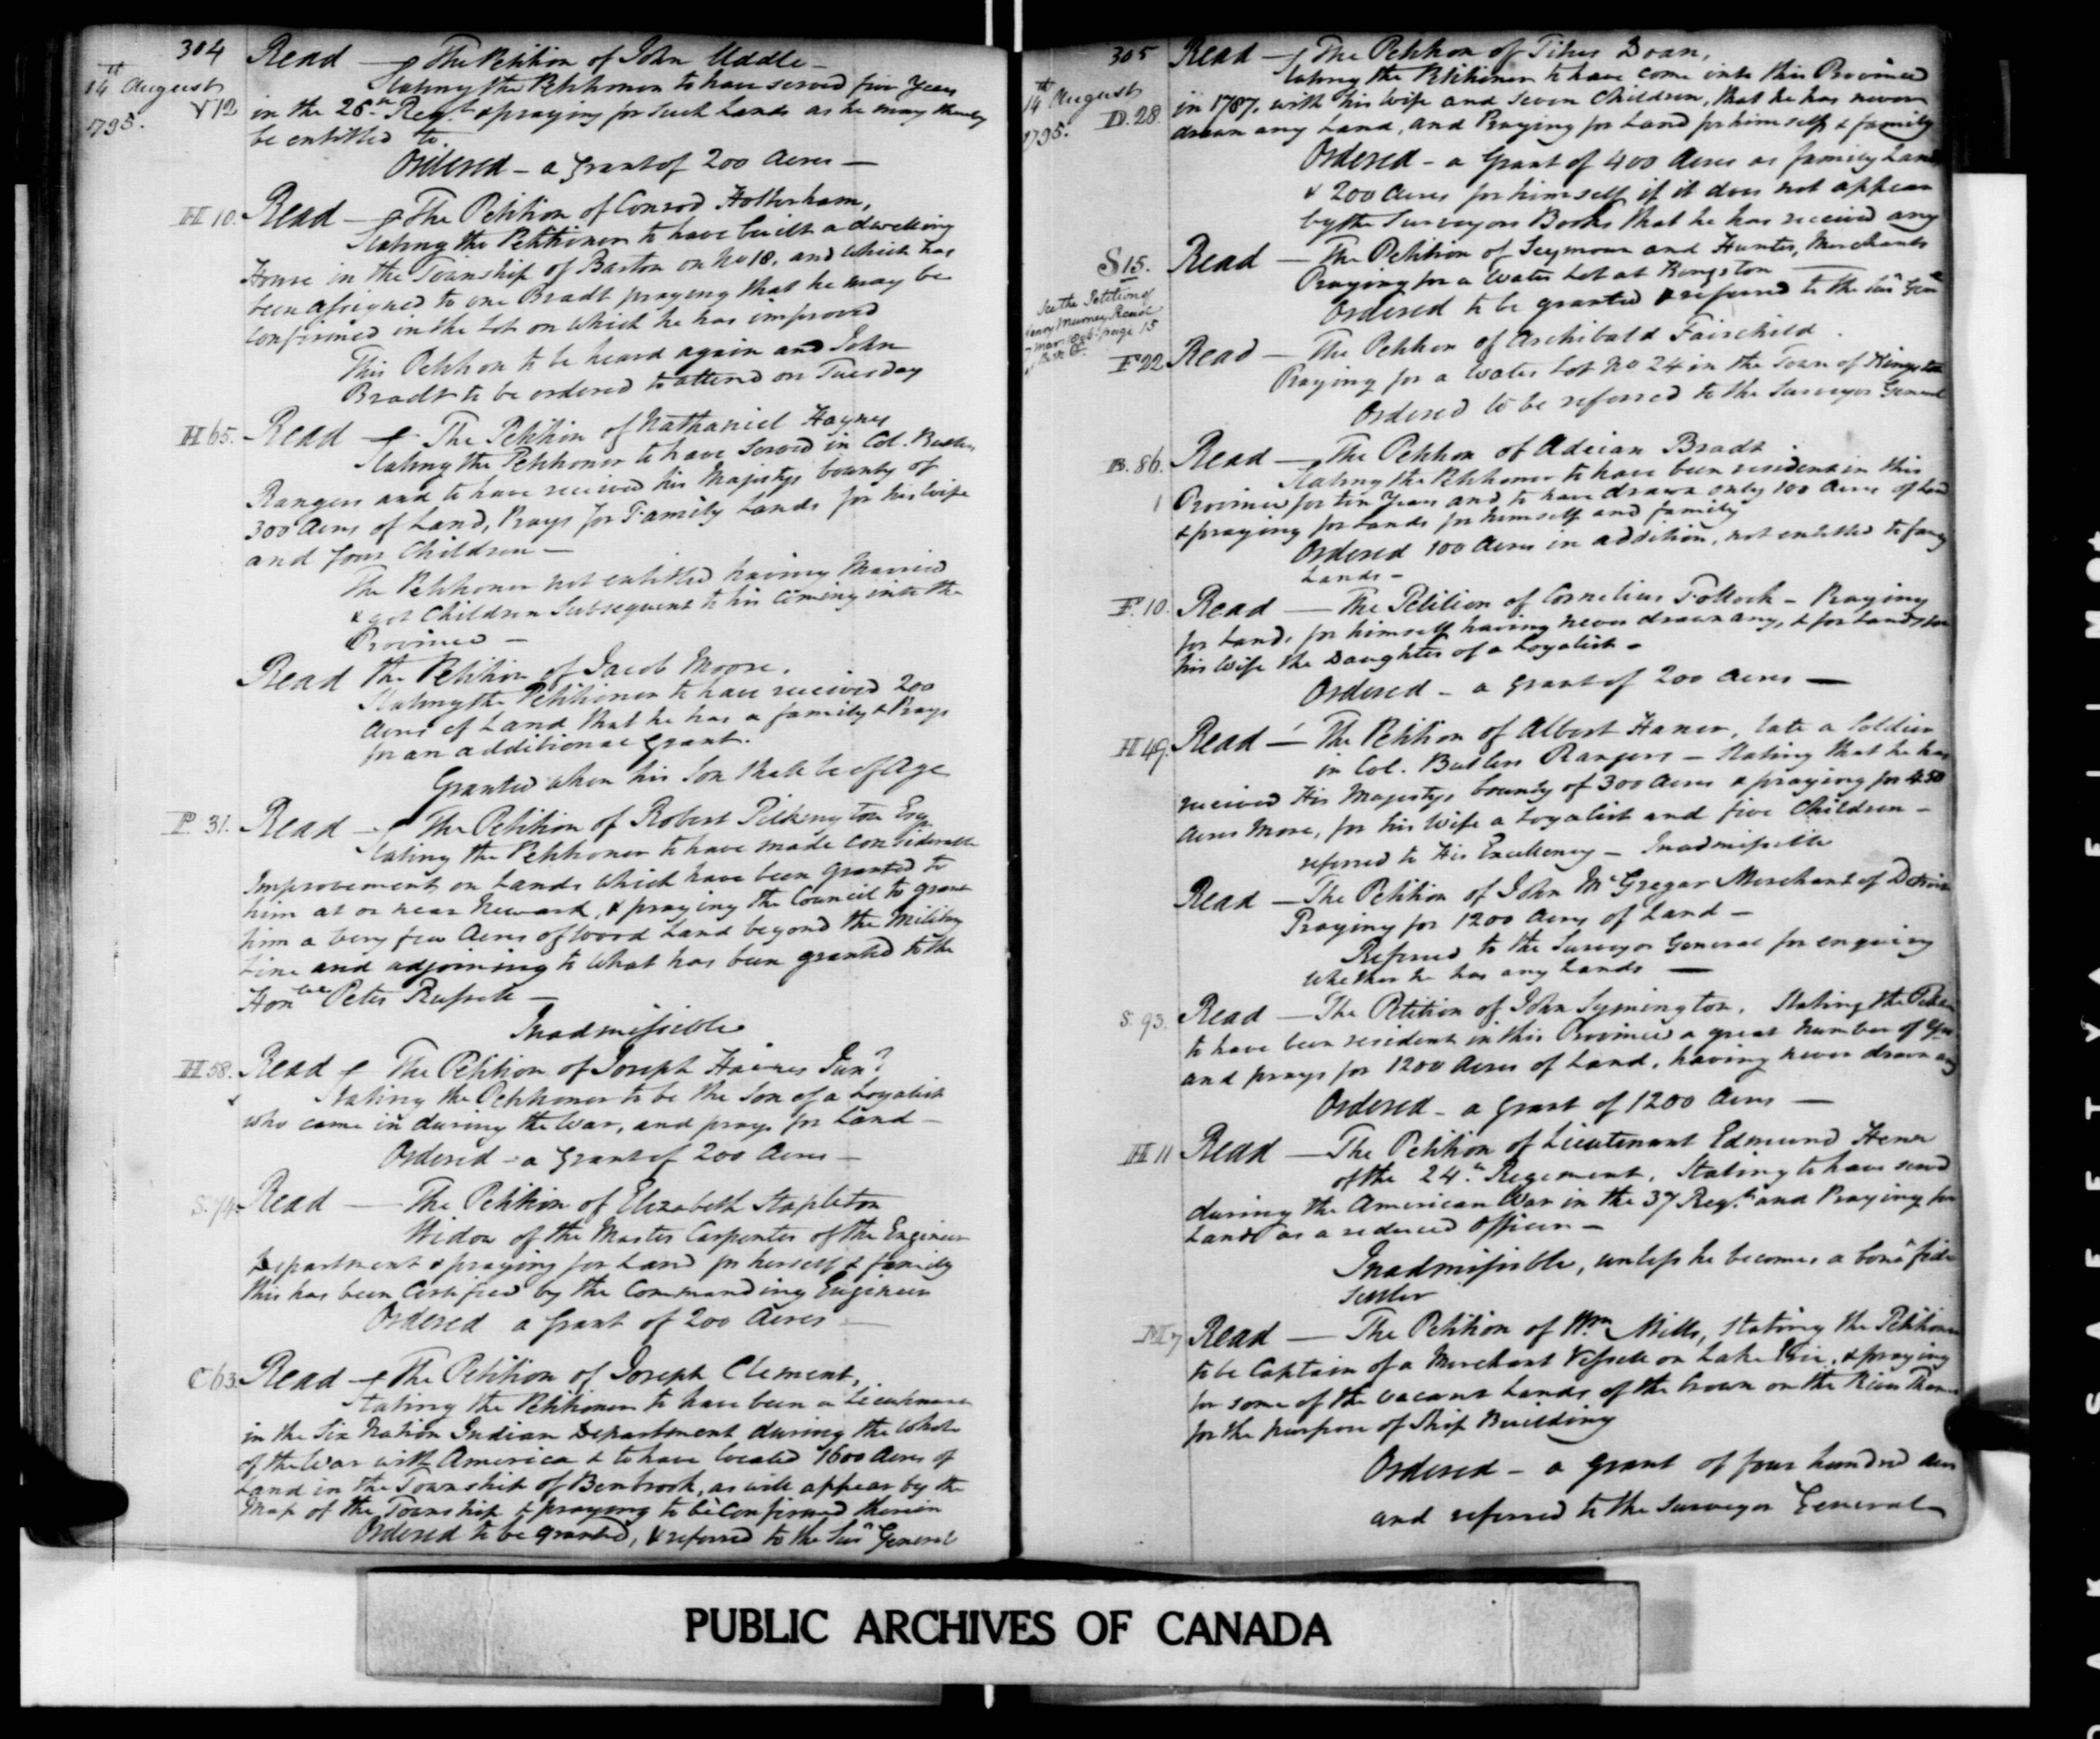 304
14th August
1795.
V 12
Read — The Petition of John Uddle —
Stating the Petitioner to have served five Years
in the 26th Regt. & praying for such Lands as he may thereby
be entitled to.
Ordered – a grant of 200 Acres —
H 10. Read — The Petition of Conrod
Stating the Petitioner to have built a dwelling
House in the Township of Barton on No 18, and which has
been assigned to one Bradt praying that he may be
confirmed in the Lot on which he has improved
This Petition to be heard again and John
Bradt to be ordered to attend on Tuesday
H 65. Read — The Petition of Nathaniel Haynes
Stating the Petitioner to have Served in Col. Butlers
Rangers and to have received his Majestys bounty of
300 Acres of Land, Prays for Family Lands for his Wife
and four Children —
The Petitioner not entitled having Married
& got Children Subsequent to his Coming into the
Province —
Read the Petition of Jacob Moore.
Stating the Petitioner to have received 200
Acres of Land that he has a family & Prays
for an additional grant.
Granted when his Son shall be of Age
P. 31. Read — The Petition of Robert Pilkington Esqr
Stating the Petitioner to have made considerable
Improvement on Lands which have been granted to
him at or near Newark, & praying the Council to grant
him a very few Acres of Wood Land beyond the Military
Line and adjoining to what has been granted to the
Honble Peter Russell —
Inadmissible
H 58. Read — The Petition of Joseph Haines Junr
Stating the Petitioner to be the Son of a Loyalist
who came in during the War, and prays for Land —
Ordered – a grant of 200 Acres —
S. 74. Read — The Petition of Elizabeth Stapleton
Widow of the Master Carpenter of the Engineer
Department & praying for Land for herself & family
this has been Certified by the Commanding Engineer
Ordered a grant of 200 Acres —
C 63. Read — The Petition of Joseph Clement,
Stating the Petitioner to have been a Lieutenant
in the Six Nation Indian Department during the whole
of the War with America & to have located 1600 Acres of
Land in the Township of Benbrook, as will appear by the
Map of the Township & praying to be Confirmed therein
Ordered to be granted, & referred to the Surr General
305
14th August
1795.
D. 28.
Read — The Petition of Titus Doan,
Stating the Petitioner to have come into this Province
in 1787, with his Wife and Seven Children, that he has never
drawn any Land, and Praying for Land for himself & family
Ordered – a Grant of 400 Acres as family Lands
& 200 Acres for himself if it does not appear
by the Surveyors Books that he has received any
S 15. Read — The Petition of Seymour and Hunter, Merchants
Praying for a Water Lot at Kingston —
Ordered to be granted & referred to the Surr Genl
See the Petition of
Henry Murney Read
page 15
F 22 Read — The Petition of Archibald Fairchild.
Praying for a Water Lot No 24 in the Town of Kingston
Ordered to be referred to the Surveyor General
B. 86. Read — The Petition of Adrian Bradt
Stating the Petitioner to have been resident in this
Province for ten Years and to have drawn only 100 Acres of Land
& praying for Lands for himself and family
Ordered 100 Acres in addition, not entitled to family
Lands —
F. 10. Read — The Petition of Cornelius Follock – Praying
for Lands for himself having never drawn any, & for Lands for
his Wife the Daughter of a Loyalist —
Ordered – a grant of 200 Acres —
H 49. Read — The Petition of Albert Haner, late a Soldier
in Col. Butlers Rangers – Stating that he has
received His Majestys bounty of 300 Acres & praying for 450
Acres More, for his Wife a Loyalist and five Children —
referred to His Excellency – Inadmissible
Read — The Petition of John McGregor Merchant of Detroit
Praying for 1200 Acres of Land —
Referred to the Surveyor General for enquiry
whether he has any Lands —
S. 93. Read — The Petition of John Symington. Stating the Petitioner
to have been resident in this Province a great number of Years
and prays for 1200 Acres of Land, having never drawn any
Ordered – a grant of 1200 Acres —
H 11 Read — The Petition of Lieutenant Edmund Henn
of the 24th Regiment. Stating to have served
during the American War in the 37 Regt and Praying for
Lands as a reduced Officer —
Inadmissible, unless he becomes a bona fide
Settler
M 7 Read — The Petition of Wm Mills, Stating the Petitioner
to be Captain of a Merchant Vessell on Lake Erie, & praying
for some of the vacant Lands of the Crown on the River Thames
for the purpose of Ship Building
Ordered – a grant of four hundred acres
and referred to the Surveyor General
PUBLIC ARCHIVES OF CANADA